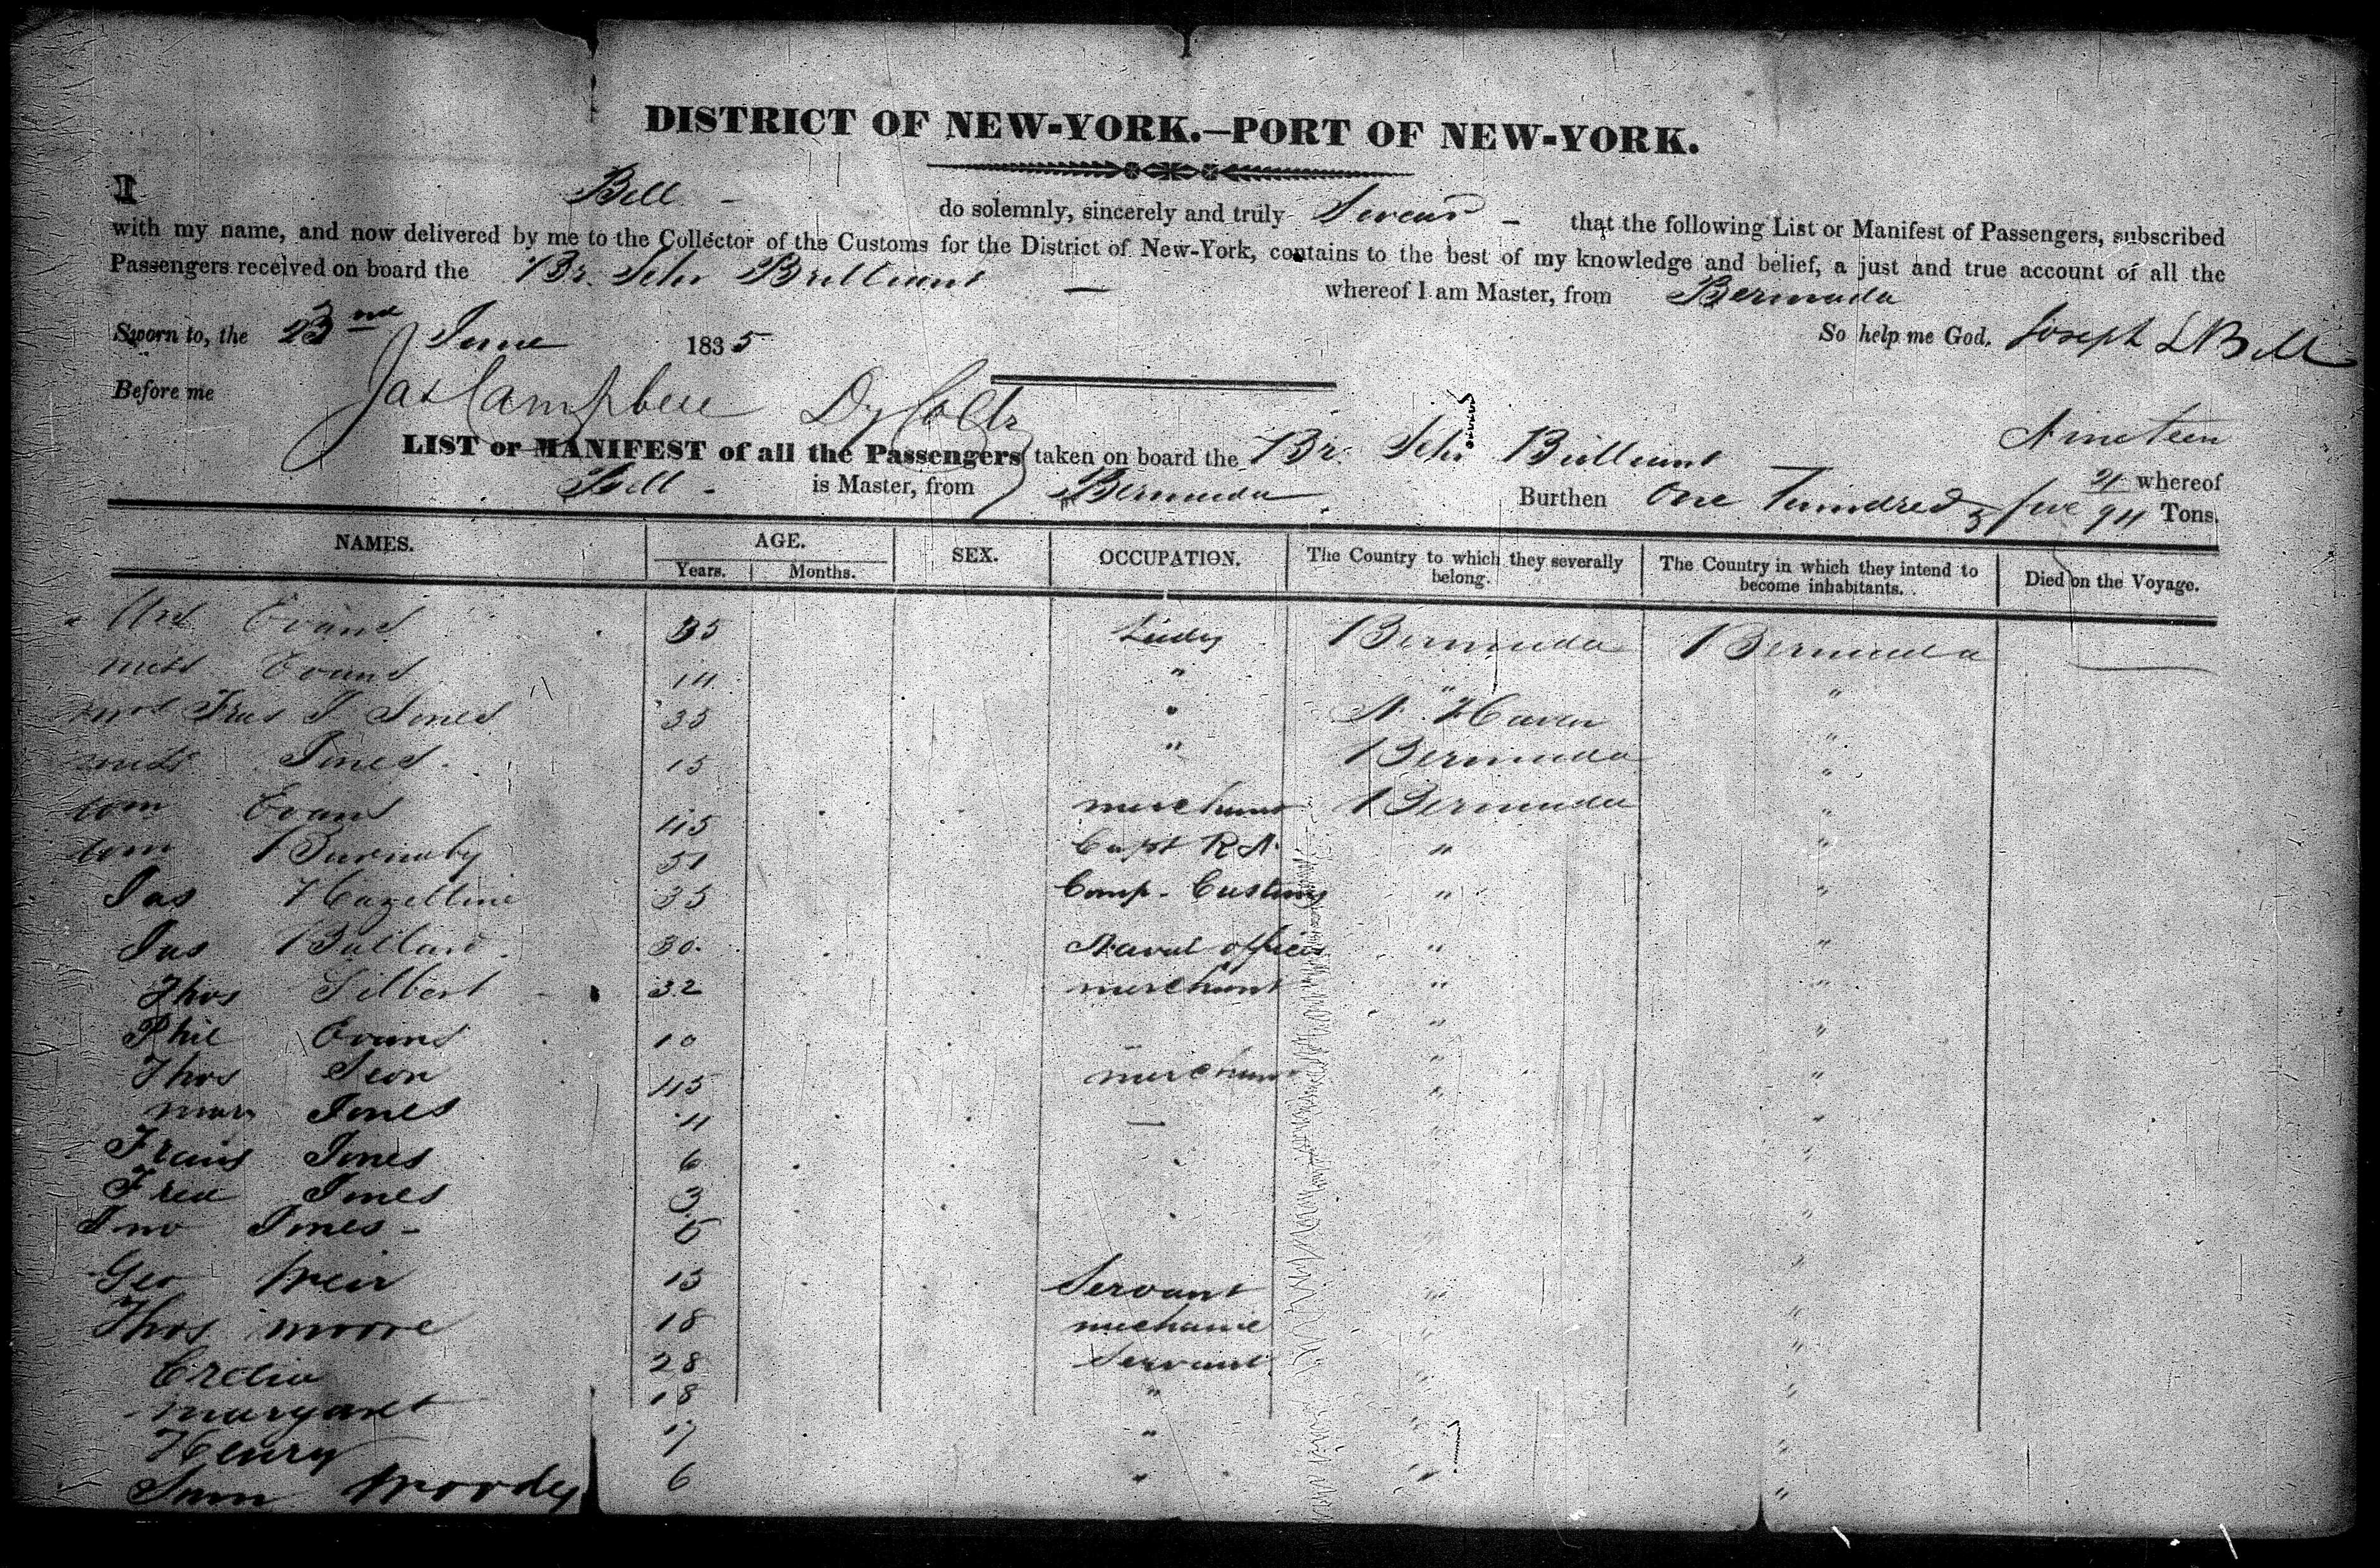 DISTRICT OF NEW-YORK.—PORT OF NEW-YORK.
I Bell - do solemnly, sincerely and truly Swear - that the following List or Manifest of Passengers, subscribed
with my name, and now delivered by me to the Collector of the Customs for the District of New-York, contains to the best of my knowledge and belief, a just and true account of all the
Passengers received on board the Br. Schr Brilliant — whereof I am Master, from Bermuda
Sworn to, the 23nd June 1835 So help me God. Joseph L Bell
Before me Jas Campbell Dy Collr
LIST or MANIFEST of all the Passengers taken on board the Br. Schr Brilliant whereof
Bell - is Master, from Bermuda Burthen One Hundred & five Nineteen 21/94 Tons.
NAMES. AGE. SEX. OCCUPATION. The Country to which they severally belong. The Country in which they intend to become inhabitants. Died on the Voyage.
Years. Months.
Mrs Evans 35 Lady Bermuda Bermuda
Miss Evans 14 " " "
Mrs Fras J Jones 35 " N. Haven "
Miss Jones 15 " Bermuda "
Wm Evans 45 merchant Bermuda "
Wm Burnaby 51 Capt R.N. " "
Jas Hazeltine 35 Comp. Customs " "
Jas Ballard 30 Naval officer " "
Thos Gilbert 32 merchant " "
Phil Evans 10 " "
Thos Seon 45 merchant " "
Jones 11 — " "
Frans Jones 6 "
Fred Jones 3 "
Jno Jones - 5 "
Geo Weir 13 Servant " "
Thos Moore 18 mechanic " "
Cretia 28 Servant " "
Margaret 18 " " "
Henry 17 " "
Sam Woodly 6 " " "